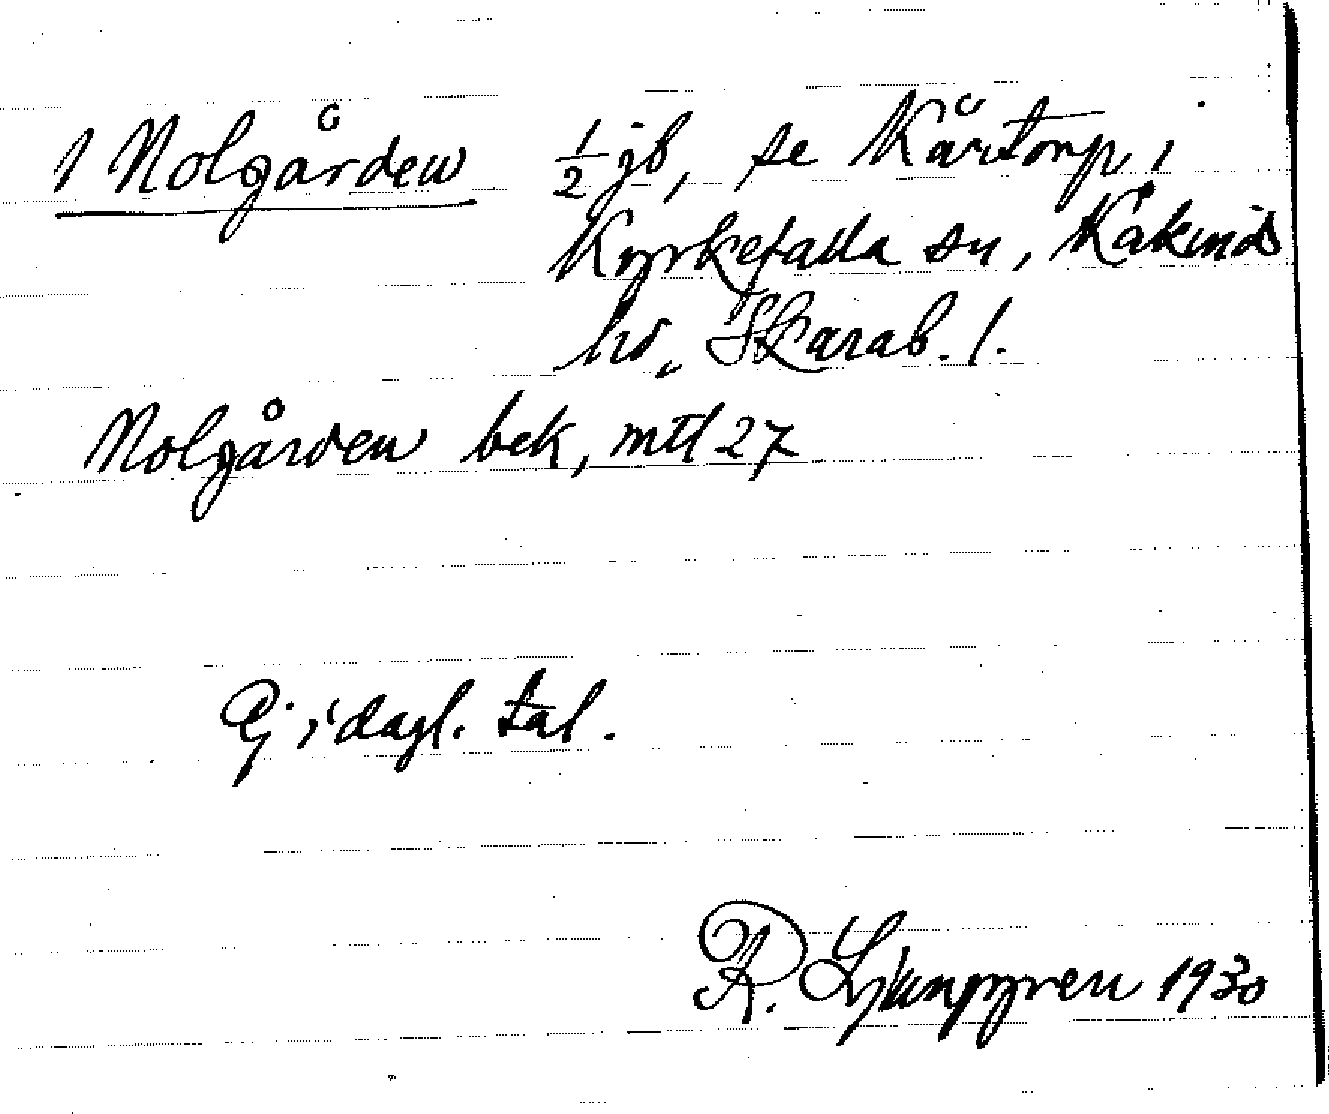 1 Nolgården ½ jb, se Kårtorp, i
Kyrkefalla sn, Kåkinds
hd, Skarab. l.
Nolgården bek, mtl 27
Ej i dagl. tal.
R. Ljunggren 1930